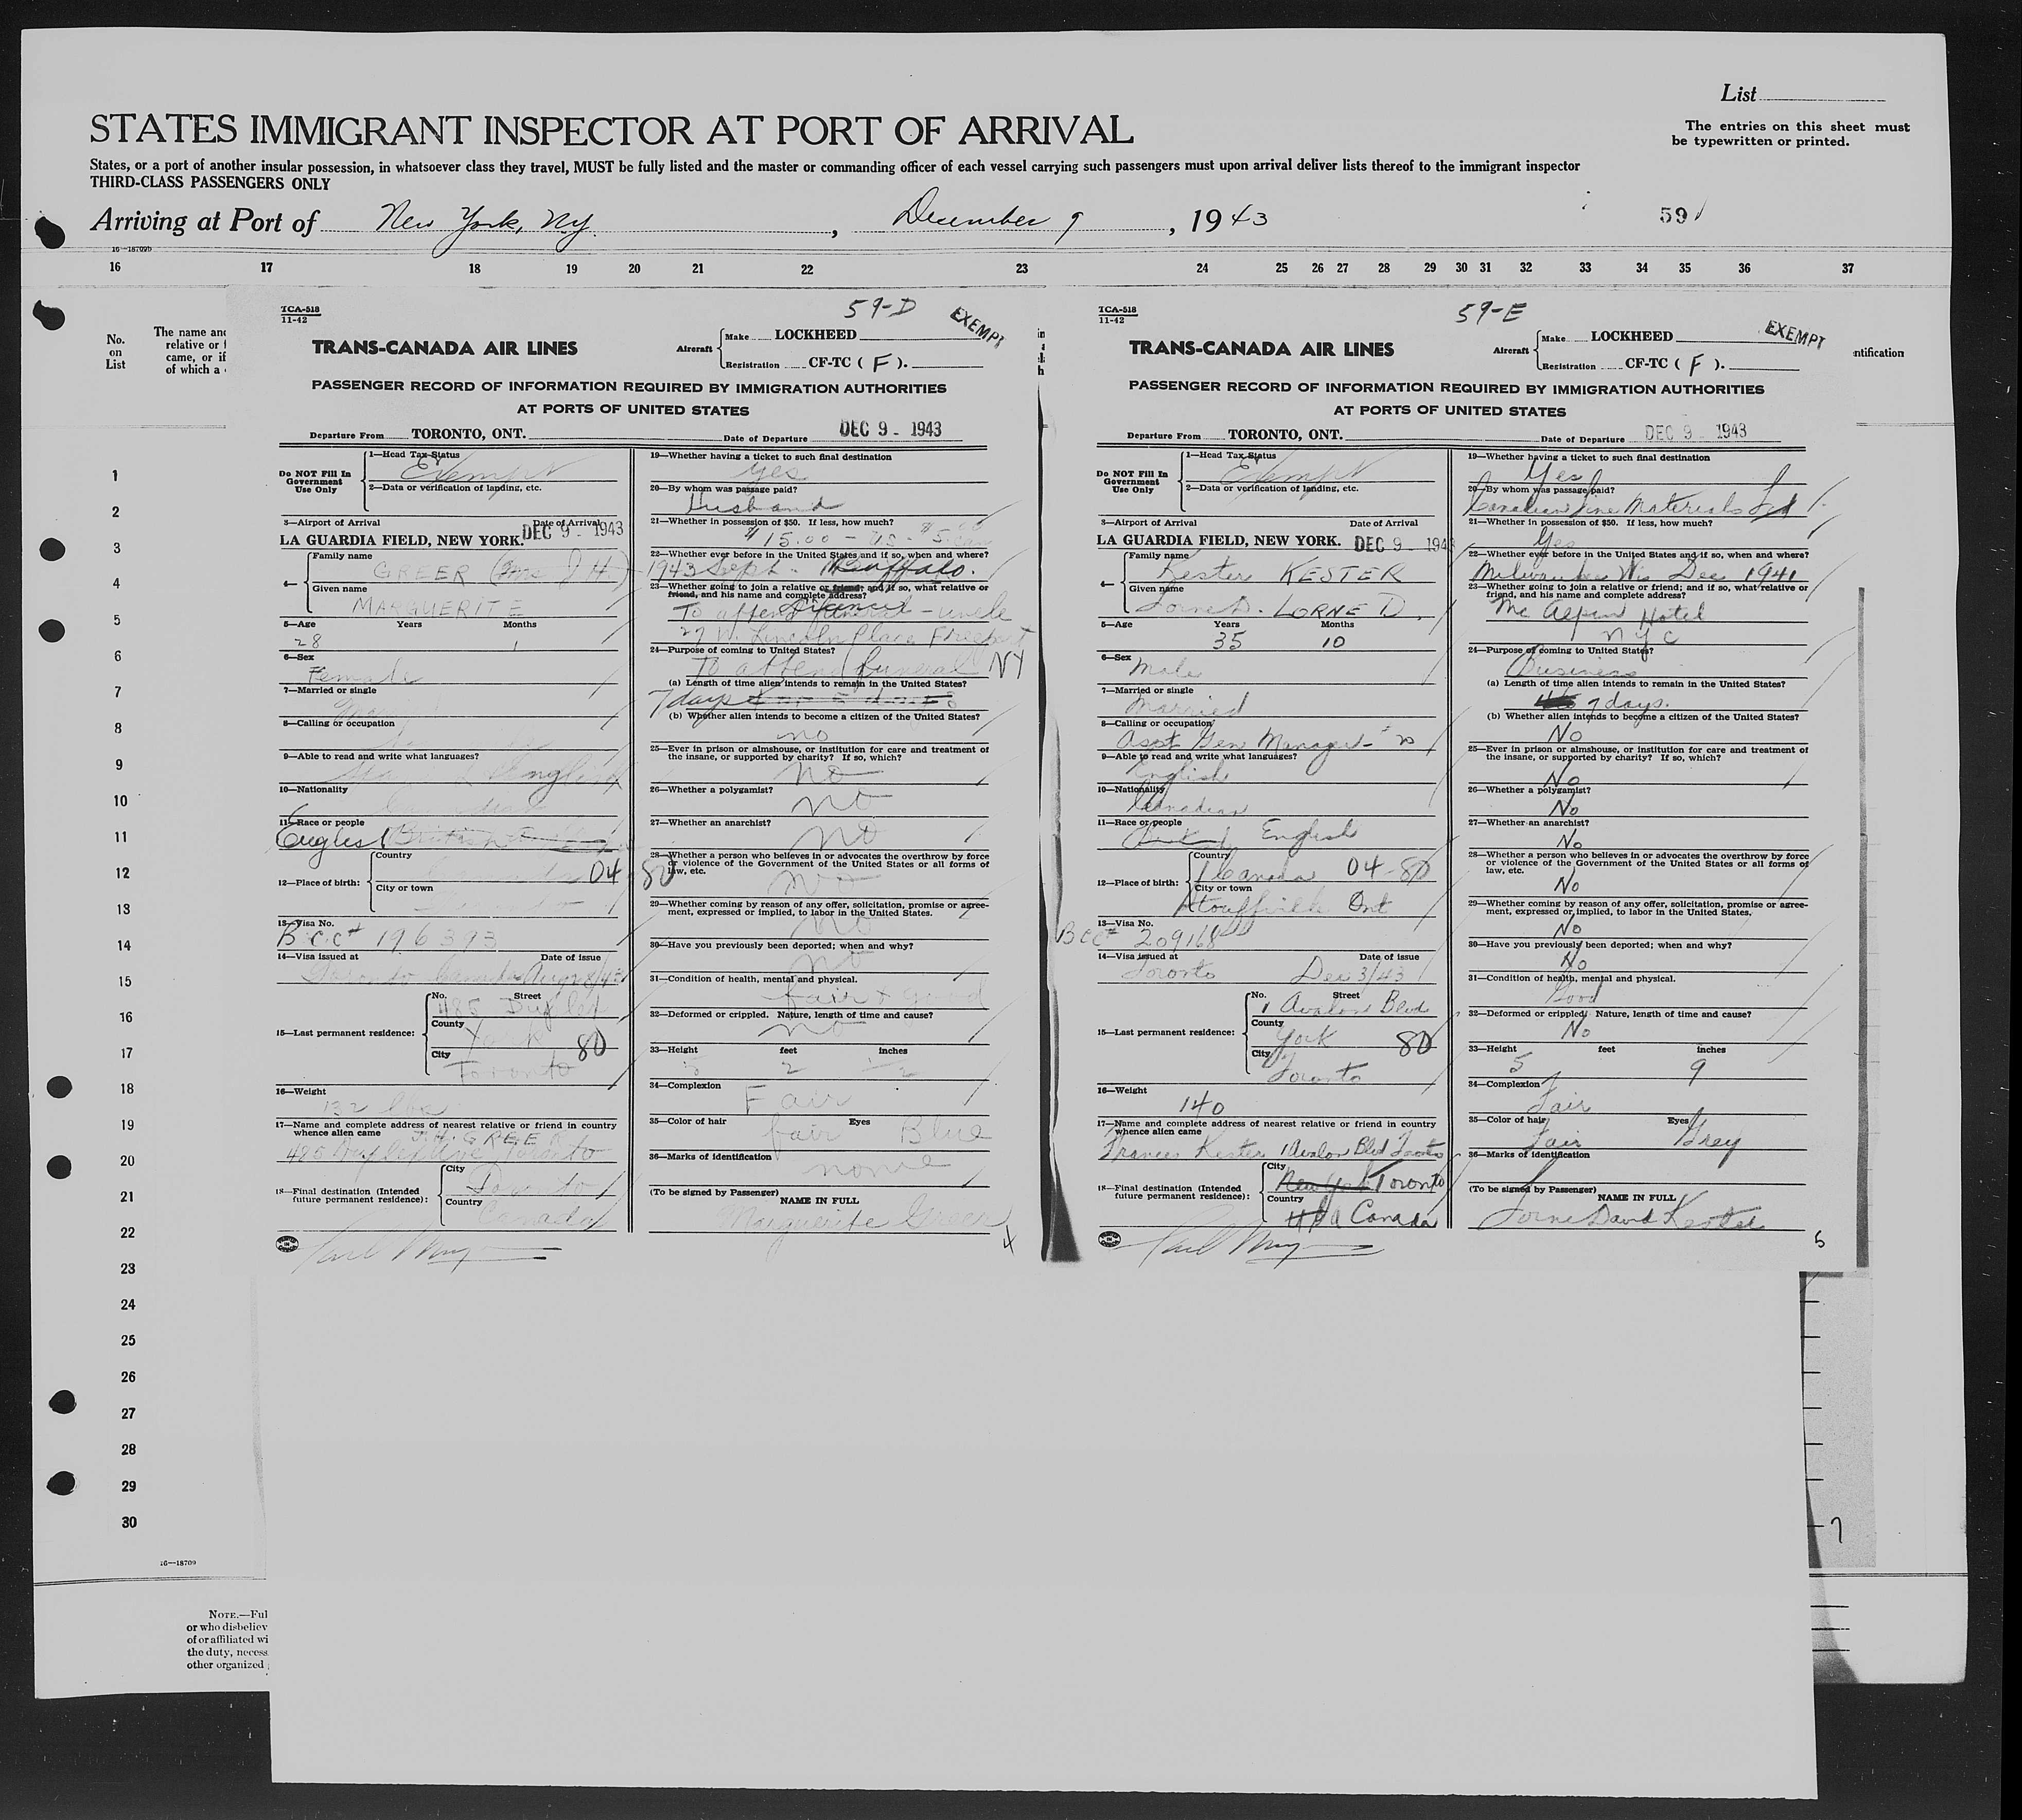 List
STATES IMMIGRANT INSPECTOR AT PORT OF ARRIVAL
The entries on this sheet must
be typewritten or printed.
States, or a port of another insular possession, in whatsoever class they travel, MUST be fully listed and the master or commanding officer of each vessel carrying such passengers must upon arrival deliver lists thereof to the immigrant inspector
THIRD-CLASS PASSENGERS ONLY
Arriving at Port of New York, N.Y., December 9, 1943
591
16—18709b
16 17 18 19 20 21 22 23 24 25 26 27 28 29 30 31 32 33 34 35 36 37
No.
on
List
The name and
relative or f
came, or if
of which a
ntification
1
2
3
4
5
6
7
8
9
10
11
12
13
14
15
16
17
18
19
20
21
22
23
24
25
26
27
28
29
30
16—18709
NOTE.—Ful
or who disbeliev
of or affiliated wi
the duty, necess
other organized
TCA-518
11-42
59-D
EXEMPT
TRANS-CANADA AIR LINES
Aircraft Make LOCKHEED
Registration CF-TC ( F ).
PASSENGER RECORD OF INFORMATION REQUIRED BY IMMIGRATION AUTHORITIES
AT PORTS OF UNITED STATES
Departure From TORONTO, ONT. Date of Departure DEC 9 - 1943
Do NOT Fill In
Government
Use Only
1—Head Tax Status
Exempt
2—Data or verification of landing, etc.
3—Airport of Arrival Date of Arrival
LA GUARDIA FIELD, NEW YORK. DEC 9 - 1943
4— Family name
GREER (Mrs J H)
Given name
MARGUERITE
5—Age Years Months
28 1
6—Sex
Female
7—Married or single
8—Calling or occupation
9—Able to read and write what languages?
English
10—Nationality
Canadian
11—Race or people
English British
12—Place of birth: Country
04 80
City or town
13—Visa No.
BCC# 196393
14—Visa issued at Date of issue
Toronto Canada
15—Last permanent residence: No. Street
485
County
York 80
City
Toronto
16—Weight
132 lbs
17—Name and complete address of nearest relative or friend in country
whence alien came J.H. GREER
485 Toronto
18—Final destination (Intended
future permanent residence): City
Toronto
Country
Canada
19—Whether having a ticket to such final destination
Yes
20—By whom was passage paid?
Husband
21—Whether in possession of $50. If less, how much?
$15.00 - US - $5.00 Can
22—Whether ever before in the United States and if so, when and where?
1943 Sept. Buffalo.
23—Whether going to join a relative or friend; and if so, what relative or
friend, and his name and complete address?
To attend funeral - uncle
27 W. Lincoln Place, Freeport
NY
24—Purpose of coming to United States?
To attend funeral
(a) Length of time alien intends to remain in the United States?
7 days
(b) Whether alien intends to become a citizen of the United States?
no
25—Ever in prison or almshouse, or institution for care and treatment of
the insane, or supported by charity? If so, which?
No
26—Whether a polygamist?
No
27—Whether an anarchist?
No
28—Whether a person who believes in or advocates the overthrow by force
or violence of the Government of the United States or all forms of
law, etc.
No
29—Whether coming by reason of any offer, solicitation, promise or agree-
ment, expressed or implied, to labor in the United States.
No
30—Have you previously been deported; when and why?
No
31—Condition of health, mental and physical.
fair & good
32—Deformed or crippled. Nature, length of time and cause?
No
33—Height feet inches
5 2 ½
34—Complexion
Fair
35—Color of hair Eyes
fair Blue
36—Marks of identification
none
(To be signed by Passenger) NAME IN FULL
Marguerite Greer
4
TCA-518
11-42
59-E
EXEMPT
TRANS-CANADA AIR LINES
Aircraft Make LOCKHEED
Registration CF-TC ( F ).
PASSENGER RECORD OF INFORMATION REQUIRED BY IMMIGRATION AUTHORITIES
AT PORTS OF UNITED STATES
Departure From TORONTO, ONT. Date of Departure DEC 9 - 1943
Do NOT Fill In
Government
Use Only
1—Head Tax Status
Exempt
2—Data or verification of landing, etc.
3—Airport of Arrival Date of Arrival
LA GUARDIA FIELD, NEW YORK. DEC 9 - 1943
4— Family name
Kester KESTER
Given name
Lorne D. LORNE D.
5—Age Years Months
35 10
6—Sex
Male
7—Married or single
Married
8—Calling or occupation
Asst Gen Manager
9—Able to read and write what languages?
English
10—Nationality
Canadian
11—Race or people
English
12—Place of birth: Country
Canada 04-80
City or town
Stouffville Ont
13—Visa No.
BCC# 209168
14—Visa issued at Date of issue
Toronto Dec 3/43
15—Last permanent residence: No. Street
1 Avalon Blvd
County
York 80
City
Toronto
16—Weight
140
17—Name and complete address of nearest relative or friend in country
whence alien came
Frances Kester 1 Avalon Blvd Toronto
18—Final destination (Intended
future permanent residence): City
New York Toronto
Country
Canada
19—Whether having a ticket to such final destination
Yes
20—By whom was passage paid?
Canadian Line Materials Ltd
21—Whether in possession of $50. If less, how much?
Yes
22—Whether ever before in the United States and if so, when and where?
Milwaukee Wis Dec 1941
23—Whether going to join a relative or friend; and if so, what relative or
friend, and his name and complete address?
Mc Alpin Hotel
NYC
24—Purpose of coming to United States?
Business
(a) Length of time alien intends to remain in the United States?
7 days.
(b) Whether alien intends to become a citizen of the United States?
No
25—Ever in prison or almshouse, or institution for care and treatment of
the insane, or supported by charity? If so, which?
No
26—Whether a polygamist?
No
27—Whether an anarchist?
No
28—Whether a person who believes in or advocates the overthrow by force
or violence of the Government of the United States or all forms of
law, etc.
No
29—Whether coming by reason of any offer, solicitation, promise or agree-
ment, expressed or implied, to labor in the United States.
No
30—Have you previously been deported; when and why?
No
31—Condition of health, mental and physical.
Good
32—Deformed or crippled. Nature, length of time and cause?
No
33—Height feet inches
5 9
34—Complexion
Fair
35—Color of hair Eyes
Fair Grey
36—Marks of identification
(To be signed by Passenger) NAME IN FULL
Lorne David Kester
5
7